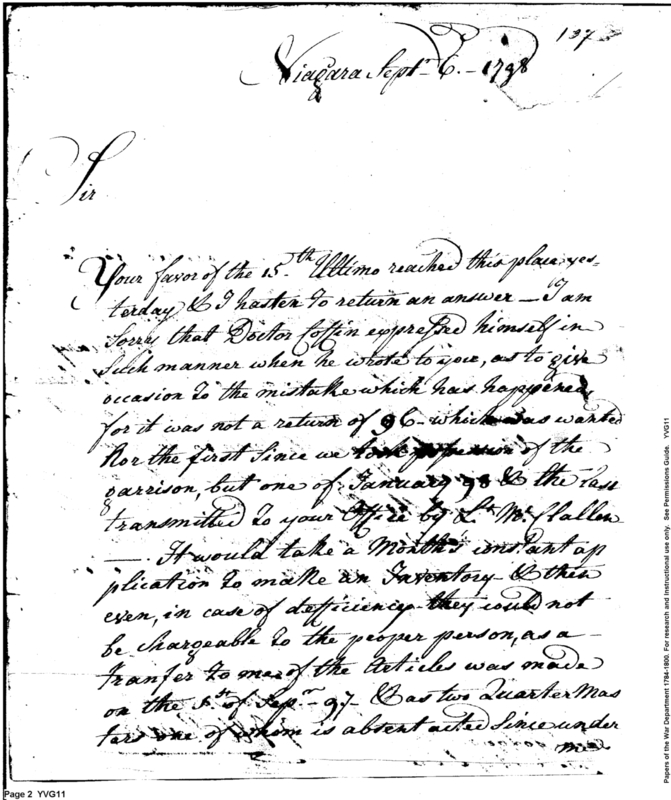 137
Niagara Sept.r 6. – 1798
Sir
Your favor of the 15th Ultimo reached this place yes=
terday & I hasten to return an answer – I am
Sorry that Doctor Coffin expressed himself in
Such manner when he wrote to you, as to give
occasion to the mistake which has happened,
for it was not a return of 96 – which was wanted
Nor the first Since we took possession of the
garrison, but one of January 98 & the last
transmitted to your Office by Lt. Mc. Clallen
—. It would take a Month's constant ap
plication to make an Inventory & then
even, in case of deficiency they could not
be chargeable to the proper person, as a –
Tranfer to me of the Articles was made
on the of Sepr. 97 – & as two Quarter Mas
ters one of whom is absent acted Since under
me
Page 2 YVG11
Papers of the War Department 1784-1800. For research and instructional use only. See Permissions Guide. YVG11